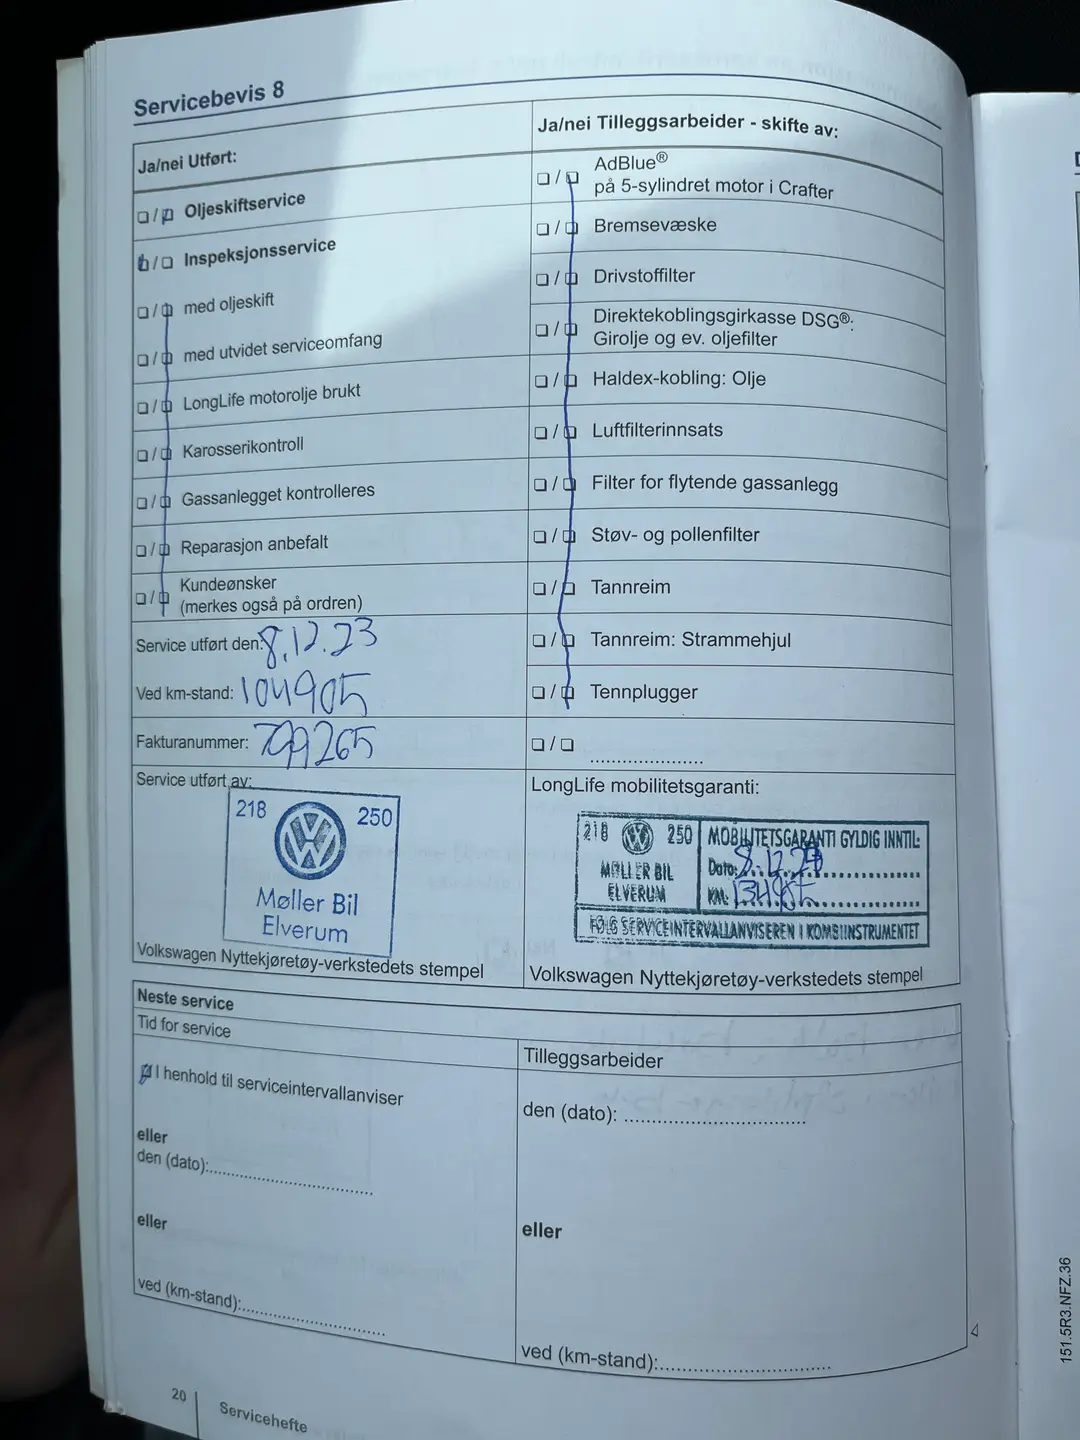 Servicebevis 8
Ja/nei Utført:
☐ / ☐ Oljeskiftservice
☐ / ☐ Inspeksjonsservice
☐ / ☐ med oljeskift
☐ / ☐ med utvidet serviceomfang
☐ / ☐ LongLife motorolje brukt
☐ / ☐ Karosserikontroll
☐ / ☐ Gassanlegget kontrolleres
☐ / ☐ Reparasjon anbefalt
☐ / ☐ Kundeønsker
(merkes også på ordren)
Service utført den: 8.12.23
Ved km-stand: 104905
Fakturanummer: 799265
Service utført av:
218 250
Møller Bil
Elverum
Volkswagen Nyttekjøretøy-verkstedets stempel
Ja/nei Tilleggsarbeider - skifte av:
☐ / ☐ AdBlue®
på 5-sylindret motor i Crafter
☐ / ☐ Bremsevæske
☐ / ☐ Drivstoffilter
☐ / ☐ Direktekoblingsgirkasse DSG®:
Girolje og ev. oljefilter
☐ / ☐ Haldex-kobling: Olje
☐ / ☐ Luftfilterinnsats
☐ / ☐ Filter for flytende gassanlegg
☐ / ☐ Støv- og pollenfilter
☐ / ☐ Tannreim
☐ / ☐ Tannreim: Strammehjul
☐ / ☐ Tennplugger
☐ / ☐ ....................
LongLife mobilitetsgaranti:
218 250
MØLLER BIL
ELVERUM
MOBILITETSGARANTI GYLDIG INNTIL:
Dato: 8.12.
KM:
FØLG SERVICEINTERVALLANVISEREN I KOMBIINSTRUMENTET
Volkswagen Nyttekjøretøy-verkstedets stempel
Neste service
Tid for service
☐ I henhold til serviceintervallanviser
eller
den (dato):..............................
eller
ved (km-stand):..........................
Tilleggsarbeider
den (dato): ................................
eller
ved (km-stand):..............................
20
Servicehefte
151.5R3.NFZ.36